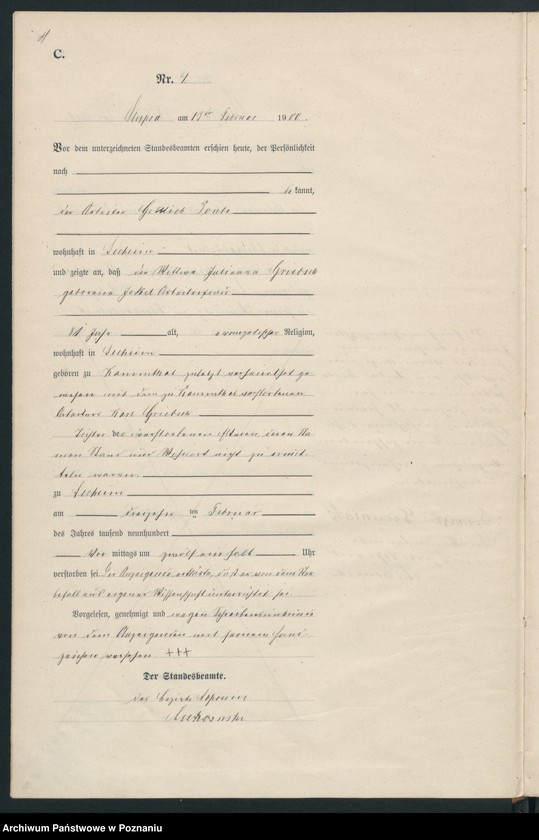 C.
Nr. 4
am 19ten Februar 1900.
Vor dem unterzeichneten Standesbeamten erschien heute, der Persönlichkeit
nach
bekannt,
der Arbeiter Gottlieb
wohnhaft in Seeheim
und zeigte an, daß die Wittwe Juliana Griebsch
geborene Arbeiterfrau
81 Jahre alt, evangelischer Religion,
wohnhaft in Seeheim
geboren zu zuletzt verheirathet ge-
wesen mit dem zu verstorbenen
Arbeiter Karl
Tochter der verstorbenen Eltern deren Na-
men Stand und Wohnort nicht zu ermit-
teln waren
zu Seeheim
am dreizehnten Februar
des Jahres tausend neunhundert
Vormittags um zwölf einhalb Uhr
verstorben sei. Der Anzeigende erklärte, daß er von dem Ster-
befall aus eigener Wissenschaft unterrichtet sei
Vorgelesen, genehmigt und wegen Schreibensunkunde
von dem Anzeigenden mit seinem Hand-
zeichen versehen +++
Der Standesbeamte.
Archiwum Państwowe w Poznaniu